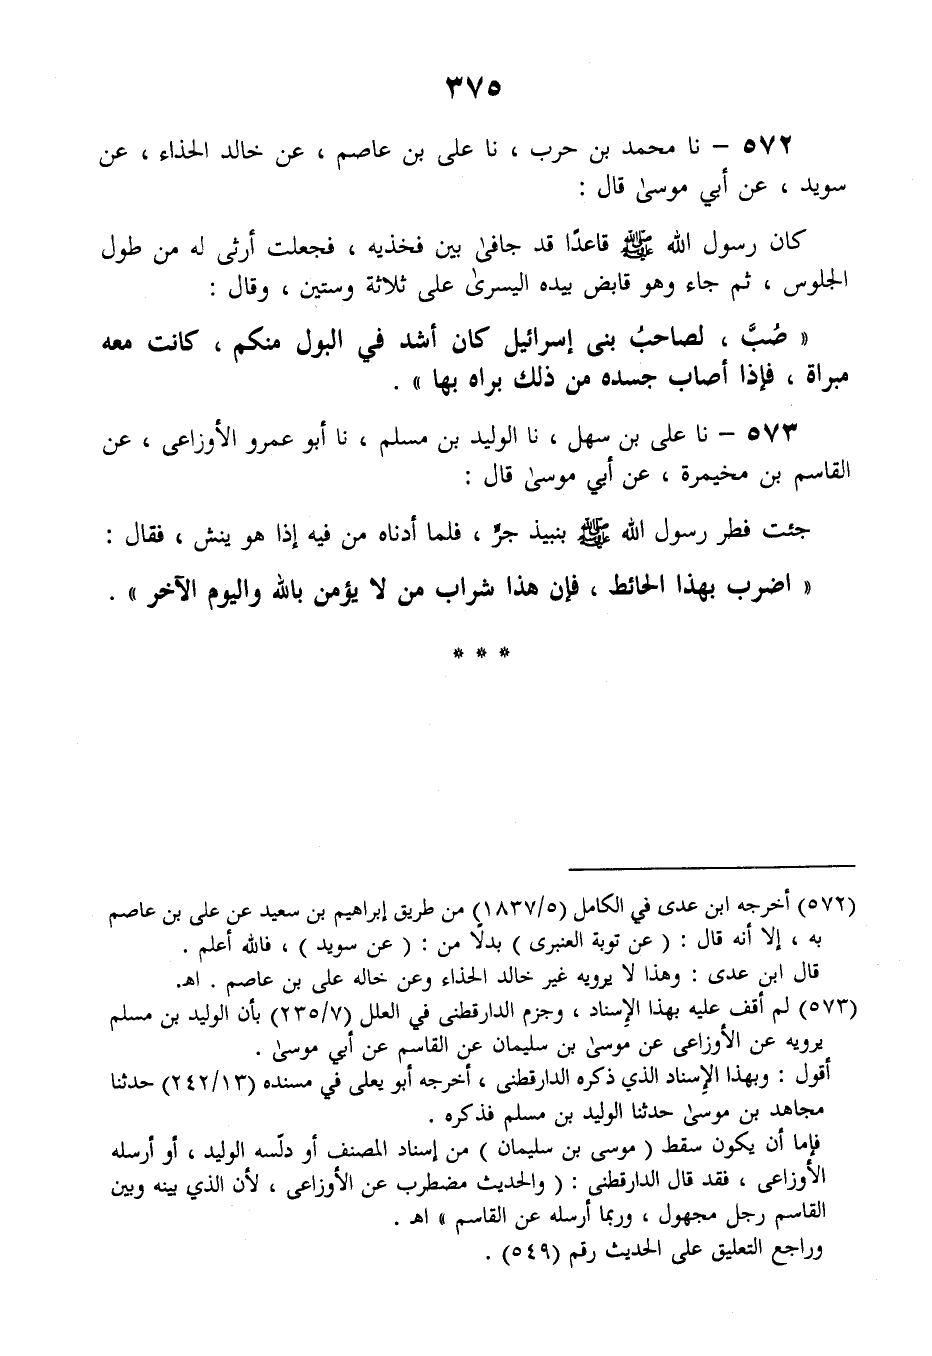 ٣٧٥
٥٧٢ – نا محمد بن حرب ، نا على بن عاصم ، عن خالد الحذاء ، عن
سويد ، عن أبي موسىٰ قال :
كان رسول الله ﷺ قاعدًا قد جافىٰ بين فخذيه ، فجعلت أرثى له من طول
الجلوس ، ثم جاء وهو قابض بيده اليسرىٰ على ثلاثة وستين ، وقال :
« صُبَّ ، لصاحبُ بنى إسرائيل كان أشد في البول منكم ، كانت معه
مبراة ، فإذا أصاب جسده من ذلك براه بها » .
٥٧٣ – نا على بن سهل ، نا الوليد بن مسلم ، نا أبو عمرو الأوزاعى ، عن
القاسم بن مخيمرة ، عن أبي موسىٰ قال :
جئت فطر رسول الله ﷺ بنبيذ جرٍّ ، فلما أدناه من فيه إذا هو ينش ، فقال :
« اضرب بهذا الحائط ، فإن هذا شراب من لا يؤمن بالله واليوم الآخر » .
* * *
(٥٧٢) أخرجه ابن عدى في الكامل (١٨٣٧/٥) من طريق إبراهيم بن سعيد عن على بن عاصم
به ، إلا أنه قال : ( عن توبة العنبرى ) بدلًا من : ( عن سويد ) ، فالله أعلم .
قال ابن عدى : وهذا لا يرويه غير خالد الحذاء وعن خاله على بن عاصم . اهـ.
(٥٧٣) لم أقف عليه بهذا الإسناد ، وجزم الدارقطنى في العلل (٢٣٥/٧) بأن الوليد بن مسلم
يرويه عن الأوزاعى عن موسىٰ بن سليمان عن القاسم عن أبي موسىٰ .
أقول : وبهذا الإسناد الذي ذكره الدارقطنى ، أخرجه أبو يعلى في مسنده (٢٤٢/١٣) حدثنا
مجاهد بن موسىٰ حدثنا الوليد بن مسلم فذكره .
فإما أن يكون سقط ( موسى بن سليمان ) من إسناد المصنف أو دلّسه الوليد ، أو أرسله
الأوزاعى ، فقد قال الدارقطنى : ( والحديث مضطرب عن الأوزاعى ، لأن الذي بينه وبين
القاسم رجل مجهول ، وربما أرسله عن القاسم » اهـ .
وراجع التعليق على الحديث رقم (٥٤٩) .